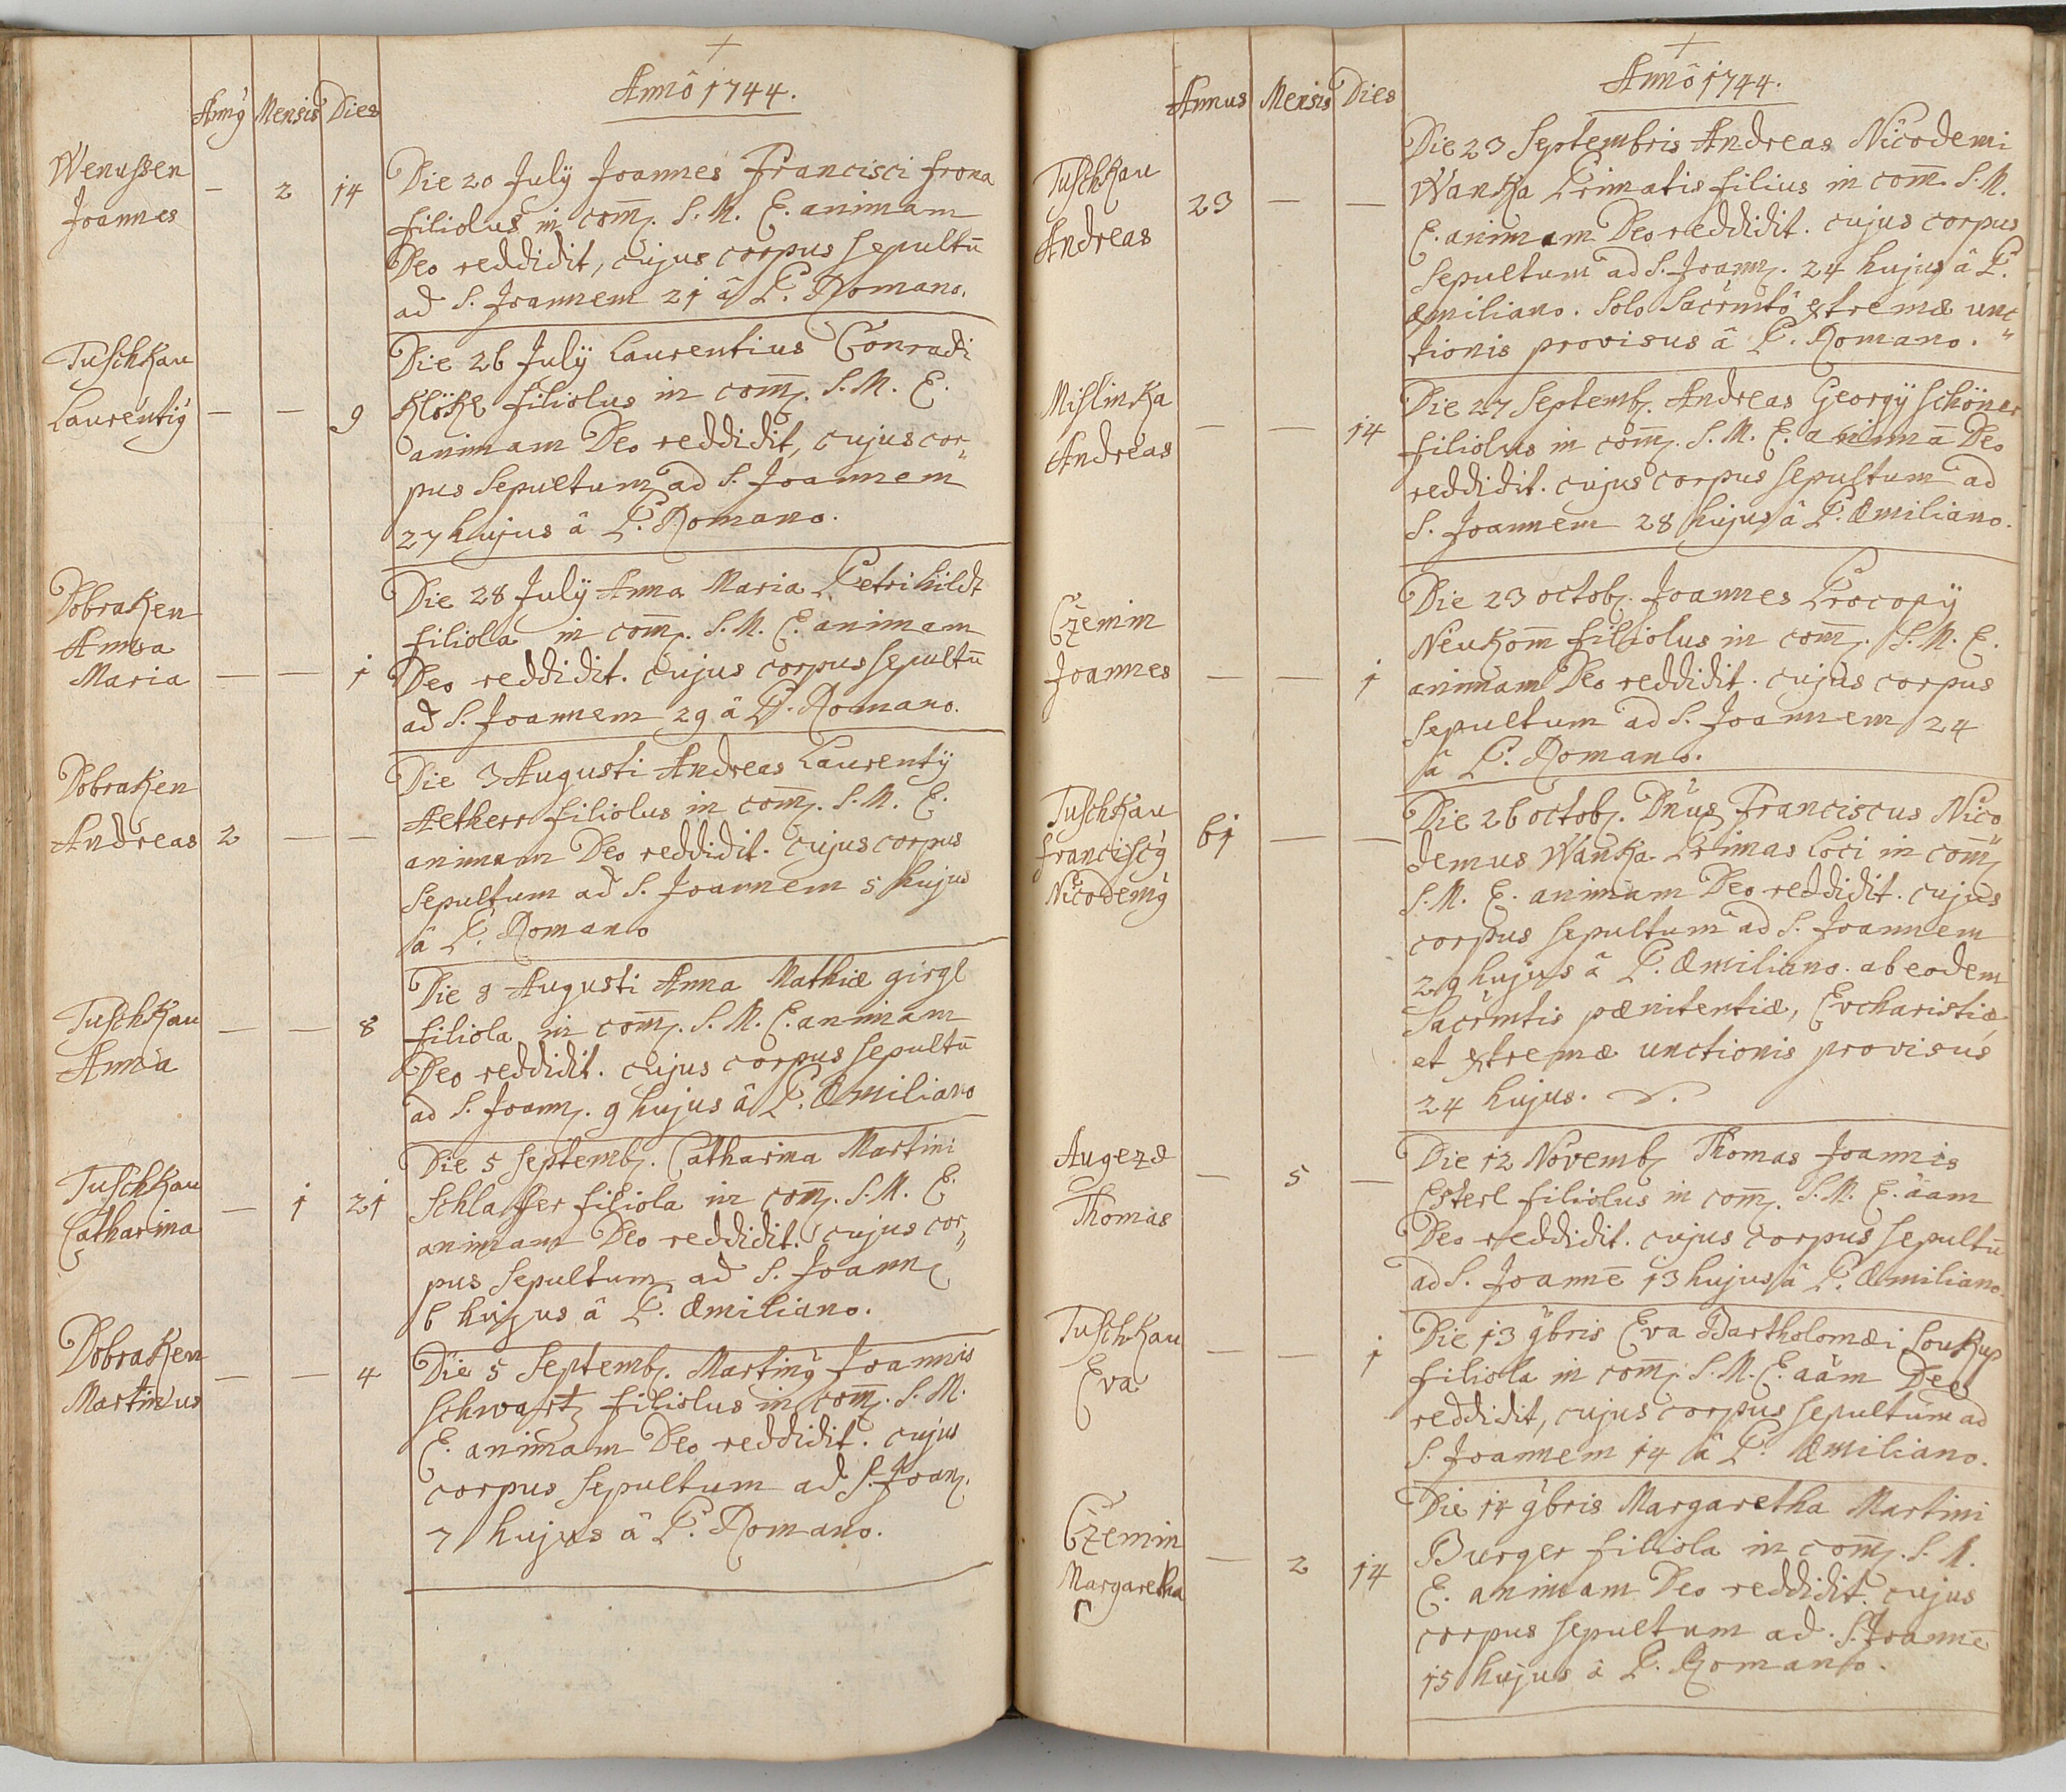 Annô 1744.
Annꝰ Mensis Dies
Wenussen
Joannes
— 2 14
Die 20 Julÿ Joannes Francisci frona
filiolus in com̄. S. M. E. animam
Deo reddidit, cujus corpus sepultū
ad S. Joannem 21 â P. Romano.
Tuschkau
Laurentiꝰ
— — 9
Die 26 Julÿ Laurentius Conradi
Klökl filiolus in com̄. S. M. E.
animam Deo reddidit, cujus cor„
pus sepultum ad S. Joannem
27 hujus â P. Romano.
Dobraken
Anna
Maria
— — 1
Die 28 Julÿ Anna Maria Petri hildt
filiola in com̄. S. M. E. animam
Deo reddidit. cujus corpus sepultū
ad S. Joannem 29 â P. Romano.
Dobraken
Andreas
2 — —
Die 3 Augusti Andreas Laurentÿ
Aetherr filiolus in com̄. S. M. E.
animam Deo reddidit. cujus corpus
sepultum ad S. Joannem 5 hujus
â P. Romano
Tuschkau
Anna
— — 8
Die 8 Augusti Anna Mathiæ girgl
filiola in com̄. S. M. E. animam
Deo reddidit. cujus corpus sepultū
ad S. Joann. 9 hujus â P. Æmiliano
Tuschkau
Catharina
— 1 21
Die 5 Septemb. Catharina Martini
Schlaffer filiola in com̄. S. M. E.
animam Deo reddidit. cujus cor„
pus sepultum ad S. Joann.
6 hujus â P. Æmiliano.
Dobraken
Martinus
— — 4
Die 5 Septemb. Martinꝰ Joannis
Schwartz filiolus in com̄. S. M.
E. animam Deo reddidit. cujus
corpus sepultum ad S. Joan.
7 hujus â P. Romano.
Annô 1744.
Annus Mensis Dies
Tuschkau
Andreas
23 — —
Die 23 Septembris Andreas Nicodemi
Wanka Primatis filius in com̄. S. M.
E. animam Deo reddidit. cujus corpus
sepultum ad S. Joann. 24 hujus â P.
Æmiliano. Solo Sacrmtô extremæ unc„
tionis provisus â P. Romano.
Mislinka
Andreas
— — 14
Die 27 Septemb. Andreas Georgÿ Schöner
filiolus in com̄. S. M. E. animā Deo
reddidit. cujus corpus sepultum ad
S. Joannem 28 hujus â P. Æmiliano.
Czemin
Joannes
— — 1
Die 23 octob. Joannes Procopÿ
Neukom̄ filiolus in com̄. S. M. E.
animam Deo reddidit. cujus corpus
sepultum ad S. Joannem 24
â P. Romano.
Tuschkau
Franciscꝰ
Nicodemꝰ
61 — —
Die 26 octob. Dn̄us Franciscus Nico„
demus Wanka Primas loci in com̄.
S. M. E. animam Deo reddidit. cujus
corpus sepultum ad S. Joannem
29 hujus â P. Æmiliano. ab eodem
Sacrmtis pænitentiæ, Evcharistiæ
et extremæ unctionis provisus
24 hujus.
Augezd
Thomas
— 5 —
Die 12 Novemb. Thomas Joannis
Esterl filiolus in com̄. S. M. E. äam
Deo reddidit. cujus corpus sepultū
ad S. Joannē 13 hujus â P. Æmiliano.
Tuschkau
Eva
— — 1
Die 13 9bris Eva Bartholomæi Soukup
filiola in com̄. S. M. E. aäm Deo
reddidit, cujus corpus sepultum ad
S. Joannem 14 â P. Æmiliano.
Czemin
Margaretha
— 2 14
Die 14 9bris Margaretha Martini
Burger filiola in com̄. S. M.
E. animam Deo reddidit. cujus
corpus sepultum ad S. Joannē
15 hujus â P. Romano.